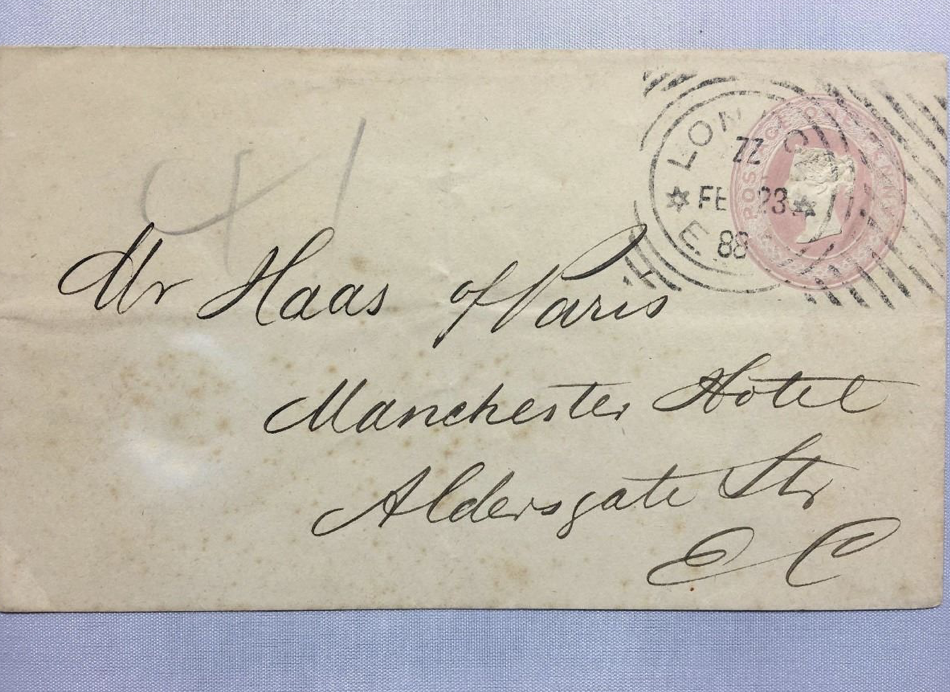 LONDON
ZZ
FE 23
88
E
POSTAGE ONE PENNY
Mr Haas of Paris
Manchester Hotel
Aldersgate Str
E C